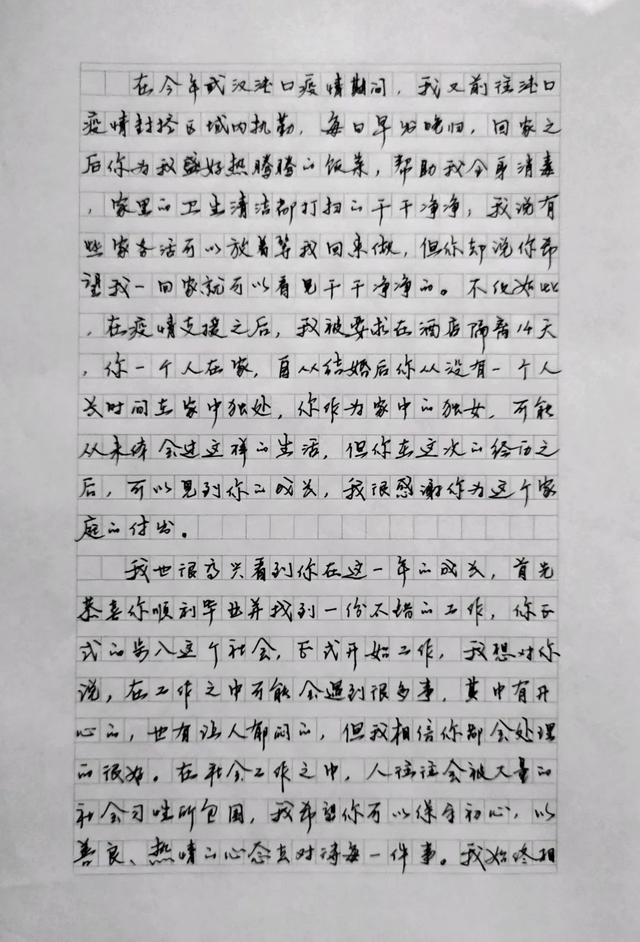 在今年武汉汉口疫情期间，我又前往汉口
疫情封控区域内执勤，每日早出晚归，回家之
后你为我盛好热腾腾的饭菜，帮助我全身消毒
，家里的卫生清洁都打扫的干干净净，我说有
些家务活可以放着等我回来做，但你却说你希
望我一回家就可以看见干干净净的。不仅如此
，在疫情支援之后，我被要求在酒店隔离14天
，你一个人在家，自从结婚后你从没有一个人
长时间在家中独处，你作为家中的独女，可能
从未体会过这样的生活，但你在这次的经历之
后，可以见到你的成长，我很感谢你为这个家
庭的付出。
我也很高兴看到你在这一年的成长，首先
恭喜你顺利毕业并找到一份不错的工作，你正
式的步入这个社会，正式开始工作，我想对你
说，在工作之中可能会遇到很多事，其中有开
心的，也有让人郁闷的，但我相信你都会处理
的很好。在社会工作之中，人往往会被大量的
社会习性所包围，我希望你可以保守初心，以
善良、热情的心态去对待每一件事。我始终相